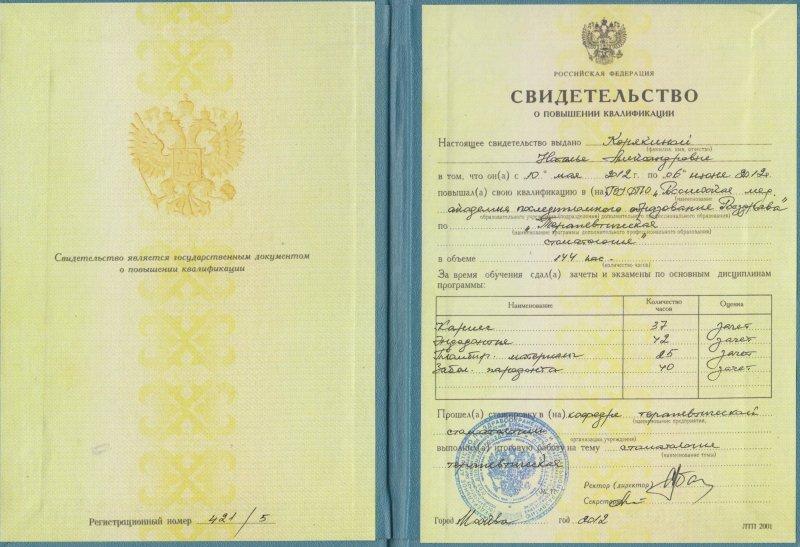 Свидетельство является государственным документом
о повышении квалификации
Регистрационный номер 421/5
РОССИЙСКАЯ ФЕДЕРАЦИЯ
СВИДЕТЕЛЬСТВО
О ПОВЫШЕНИИ КВАЛИФИКАЦИИ
Настоящее свидетельство выдано Корякиной
(фамилия, имя, отчество)
Наталье Александровне
в том, что он(а) с 10" мая 2012 г. по 06" июне 2012г.
повышал(а) свою квалификацию в (на) "Российская мед.
(наименование
академия последипломного образования Росздрава"
образовательного учреждения (подразделения) дополнительного профессионального образования)
по "Терапевтическая
(наименование программы дополнительного профессионального образования)
стоматология"
в объеме 144 час.
(количество часов)
За время обучения сдал(а) зачеты и экзамены по основным дисциплинам
программы:
Наименование Количество часов Оценка
Кариес 37 зачет
Эндодонтия 42 зачет
Пломбир. материалы 25 зачет
Забол. пародонта 40 зачет
Прошел(а) стажировку в (на) кафедре терапевтической
(наименование предприятия,
стоматологии
организации, учреждения)
выполнил(а) итоговую работу на тему стоматология
(наименование темы)
терапевтическая
Ректор (директор)
Секретарь
Город Москва год 2012
ЛТП 2001